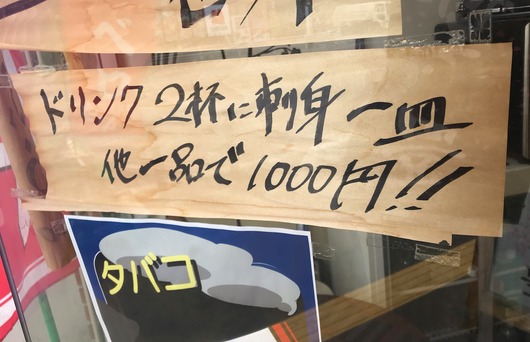 ドリンク 2杯に刺身一皿
他一品で1000円!!
タバコ